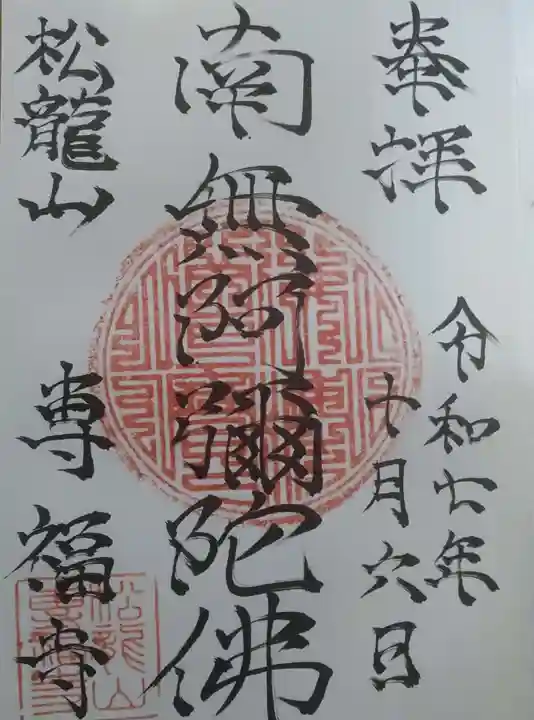 奉拝
令和七年
十月六日
南無阿彌陀佛
松龍山
専福寺